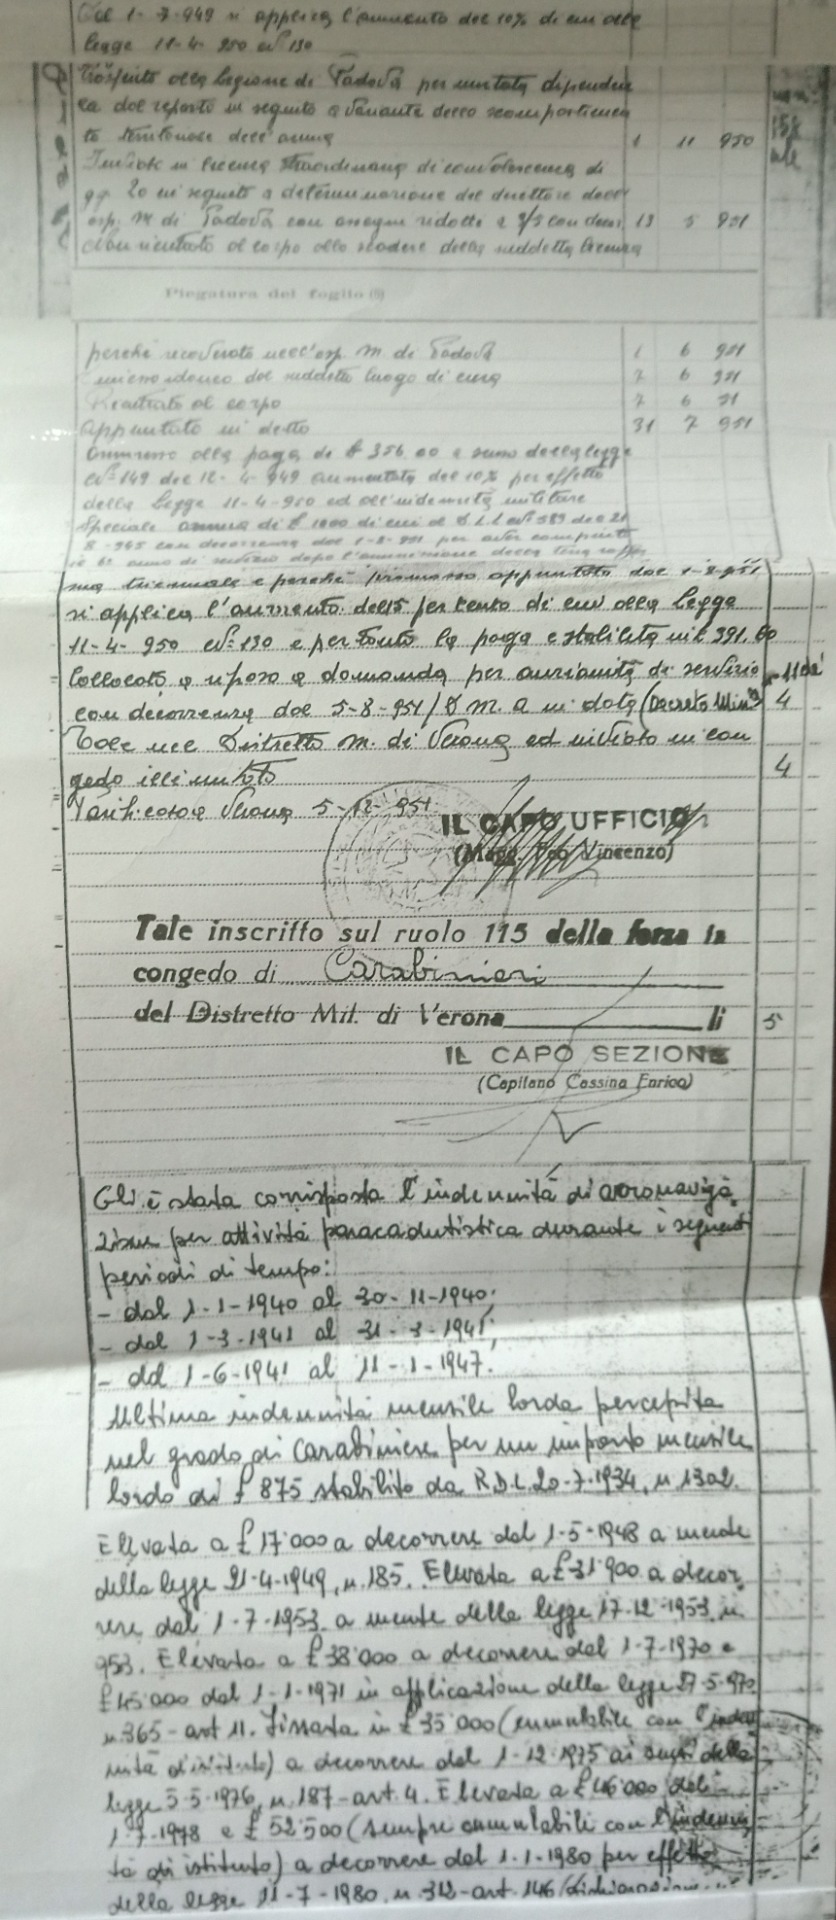 Dal 1-7-949 si applica l'aumento del 10% di cui alla
legge 11-4-950 N° 130
Trasferito alla legione di Padova per mutata dipenden
za del reparto in seguito a variante dello scomportimen
to territoriale dell'arma 1 11 950
Inviato in licenza straordinaria di convalescenza di
gg. 20 in seguito a determinazione del direttore dell'
osp. M. di Padova con assegni ridotti a 4/5 con decor. 13 5 951
Non rientrato al corpo allo scadere della suddetta licenza
Piegatura del foglio (9)
perché ricoverato nell'osp. M. di Padova 1 6 951
dal suddetto luogo di cura 7 6 951
Rientrato al corpo 7 6 51
Appuntato in detto 31 7 951
Ammesso alla paga di £ 356,00 a senso della legge
N° 149 del 12-4-949 aumentata del 10% per effetto
della legge 11-4-950 ed all'indennità militare
Speciale annua di £ 1000 di cui al D.L.L. N° 583 del 21
8-945 con decorrenza dal 1-8-951 per aver compiuto
il 6° anno di servizio dopo l'ammissione della
ma triennale e perché promosso appuntato dal 1-8-951
si applica l'aumento del 15 per cento di cui alla legge
11-4-950 N° 130 e pertanto la paga è stabilita in £ 391,60
Collocato a riposo a domanda per anzianità di servizio
con decorrenza dal 5-8-951 (D.M. a in data (Decreto Min. 4
Tale nel Distretto M. di Verona ed inviato in con
gedo illimitato 4
Parificato a Verona 5-12-951
IL CAPO UFFICIO
(Magg. Vincenzo)
Tale inscritto sul ruolo 115 della forza in
congedo di Carabinieri
del Distretto Mil. di Verona li 5
IL CAPO SEZIONE
(Capitano Cassina Enrico)
Gli è stata corrisposta l'indennità di aeronaviga
zione per attività paracadutistica durante i seguenti
periodi di tempo:
- dal 1-1-1940 al 30-11-1940;
- dal 1-3-1941 al 31-3-1941;
- dal 1-6-1941 al 11-1-1947.
Ultima indennità mensile lorda percepita
nel grado di carabiniere per un importo mensile
lordo di £ 875 stabilito da R.D.L. 20-7-1934, n 1302.
Elevata a £ 17.000 a decorrere dal 1-5-1948 a mente
della legge 21-4-1949, n. 185. Elevata a £ 31.900 a decor
rere dal 1-7-1953 a mente della legge 17-12-1953 n.
953. Elevata a £ 38.000 a decorrere dal 1-7-1970 e
£ 45.000 dal 1-1-1971 in applicazione della legge 27-5-970
n. 365 - art 11. Fissata in £ 35.000 (cumulabile con l'inden
nità d'istituto) a decorrere dal 1-12-1975 ai sensi della
legge 5-5-1976, n. 187 - art. 4. Elevata a £ 46.000 dal
1-7-1978 e £ 52.500 (sempre cumulabili con l'indenni
tà di istituto) a decorrere dal 1-1-1980 per effetto
della legge 11-7-1980 n. 312 - art. 146